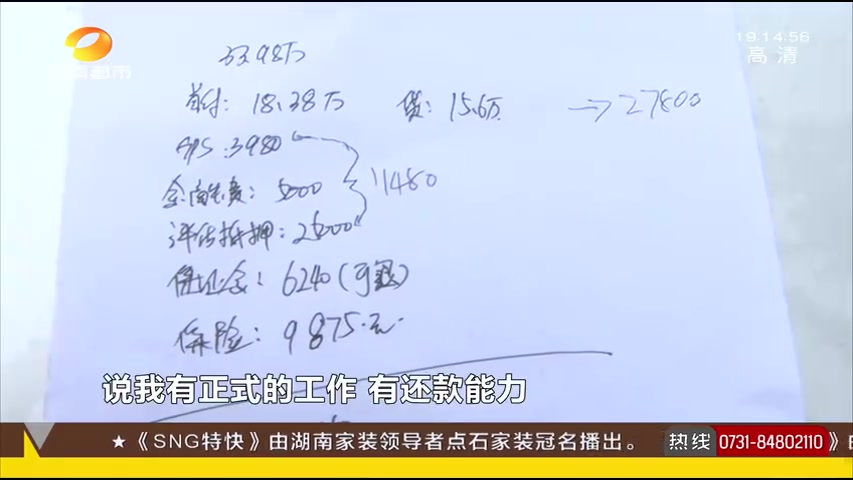 19:14:56
高清
都市
33.98万
首付：18.38万 贷：15.6万 → 27800
GPS：3980
金融服务费：5000
11480
评估抵押：2500
保证金：6240（可退）
保险：9875.元
说我有正式的工作 有还款能力
★《SNG特快》由湖南家装领导者点石家装冠名播出。 热线 0731-84802110 》